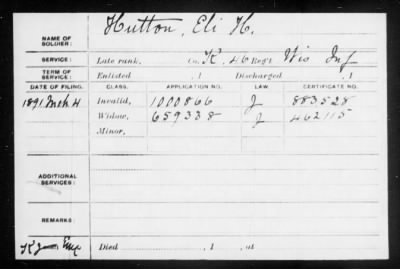 NAME OF SOLDIER: Hutton, Eli H.
SERVICE: Late rank, Co. K, 46 Reg't Wis Inf
TERM OF SERVICE: Enlisted , 1 Discharged , 1
DATE OF FILING. CLASS. APPLICATION NO. LAW. CERTIFICATE NO.
1891 Mch 4 Invalid, 1000866 J 883528
Widow, 659338 J 462115
Minor,
ADDITIONAL SERVICES:
REMARKS:
Died , 1 , at